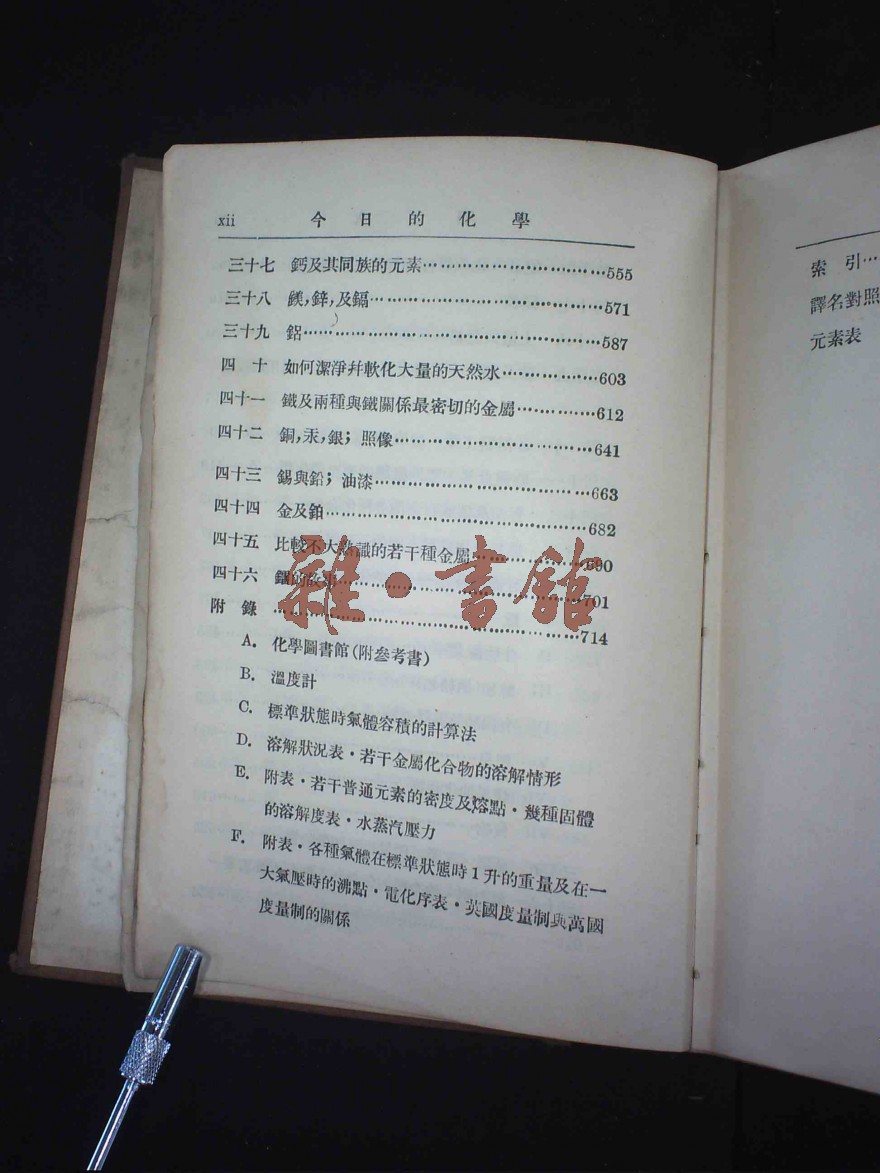 xii 今日的化學
三十七 鈣及其同族的元素…………………………555
三十八 鎂,鋅,及鎘…………………………571
三十九 鋁…………………………587
四十 如何潔淨幷軟化大量的天然水……………603
四十一 鐵及兩種與鐵關係最密切的金屬…………612
四十二 銅,汞,銀;照像…………………………641
四十三 錫與鉛;油漆…………………………663
四十四 金及鉑…………………………682
四十五 比較不大熟識的若干種金屬……………690
四十六 鐳的故事…………………………701
附錄 …………………………714
A. 化學圖書館(附參考書)
B. 溫度計
C. 標準狀態時氣體容積的計算法
D. 溶解狀況表·若干金屬化合物的溶解情形
E. 附表·若干普通元素的密度及熔點·幾種固體
的溶解度表·水蒸汽壓力
F. 附表·各種氣體在標準狀態時1升的重量及在一
大氣壓時的沸點·電化序表·英國度量制與萬國
度量制的關係
雜·書館
索引…
譯名對照
元素表